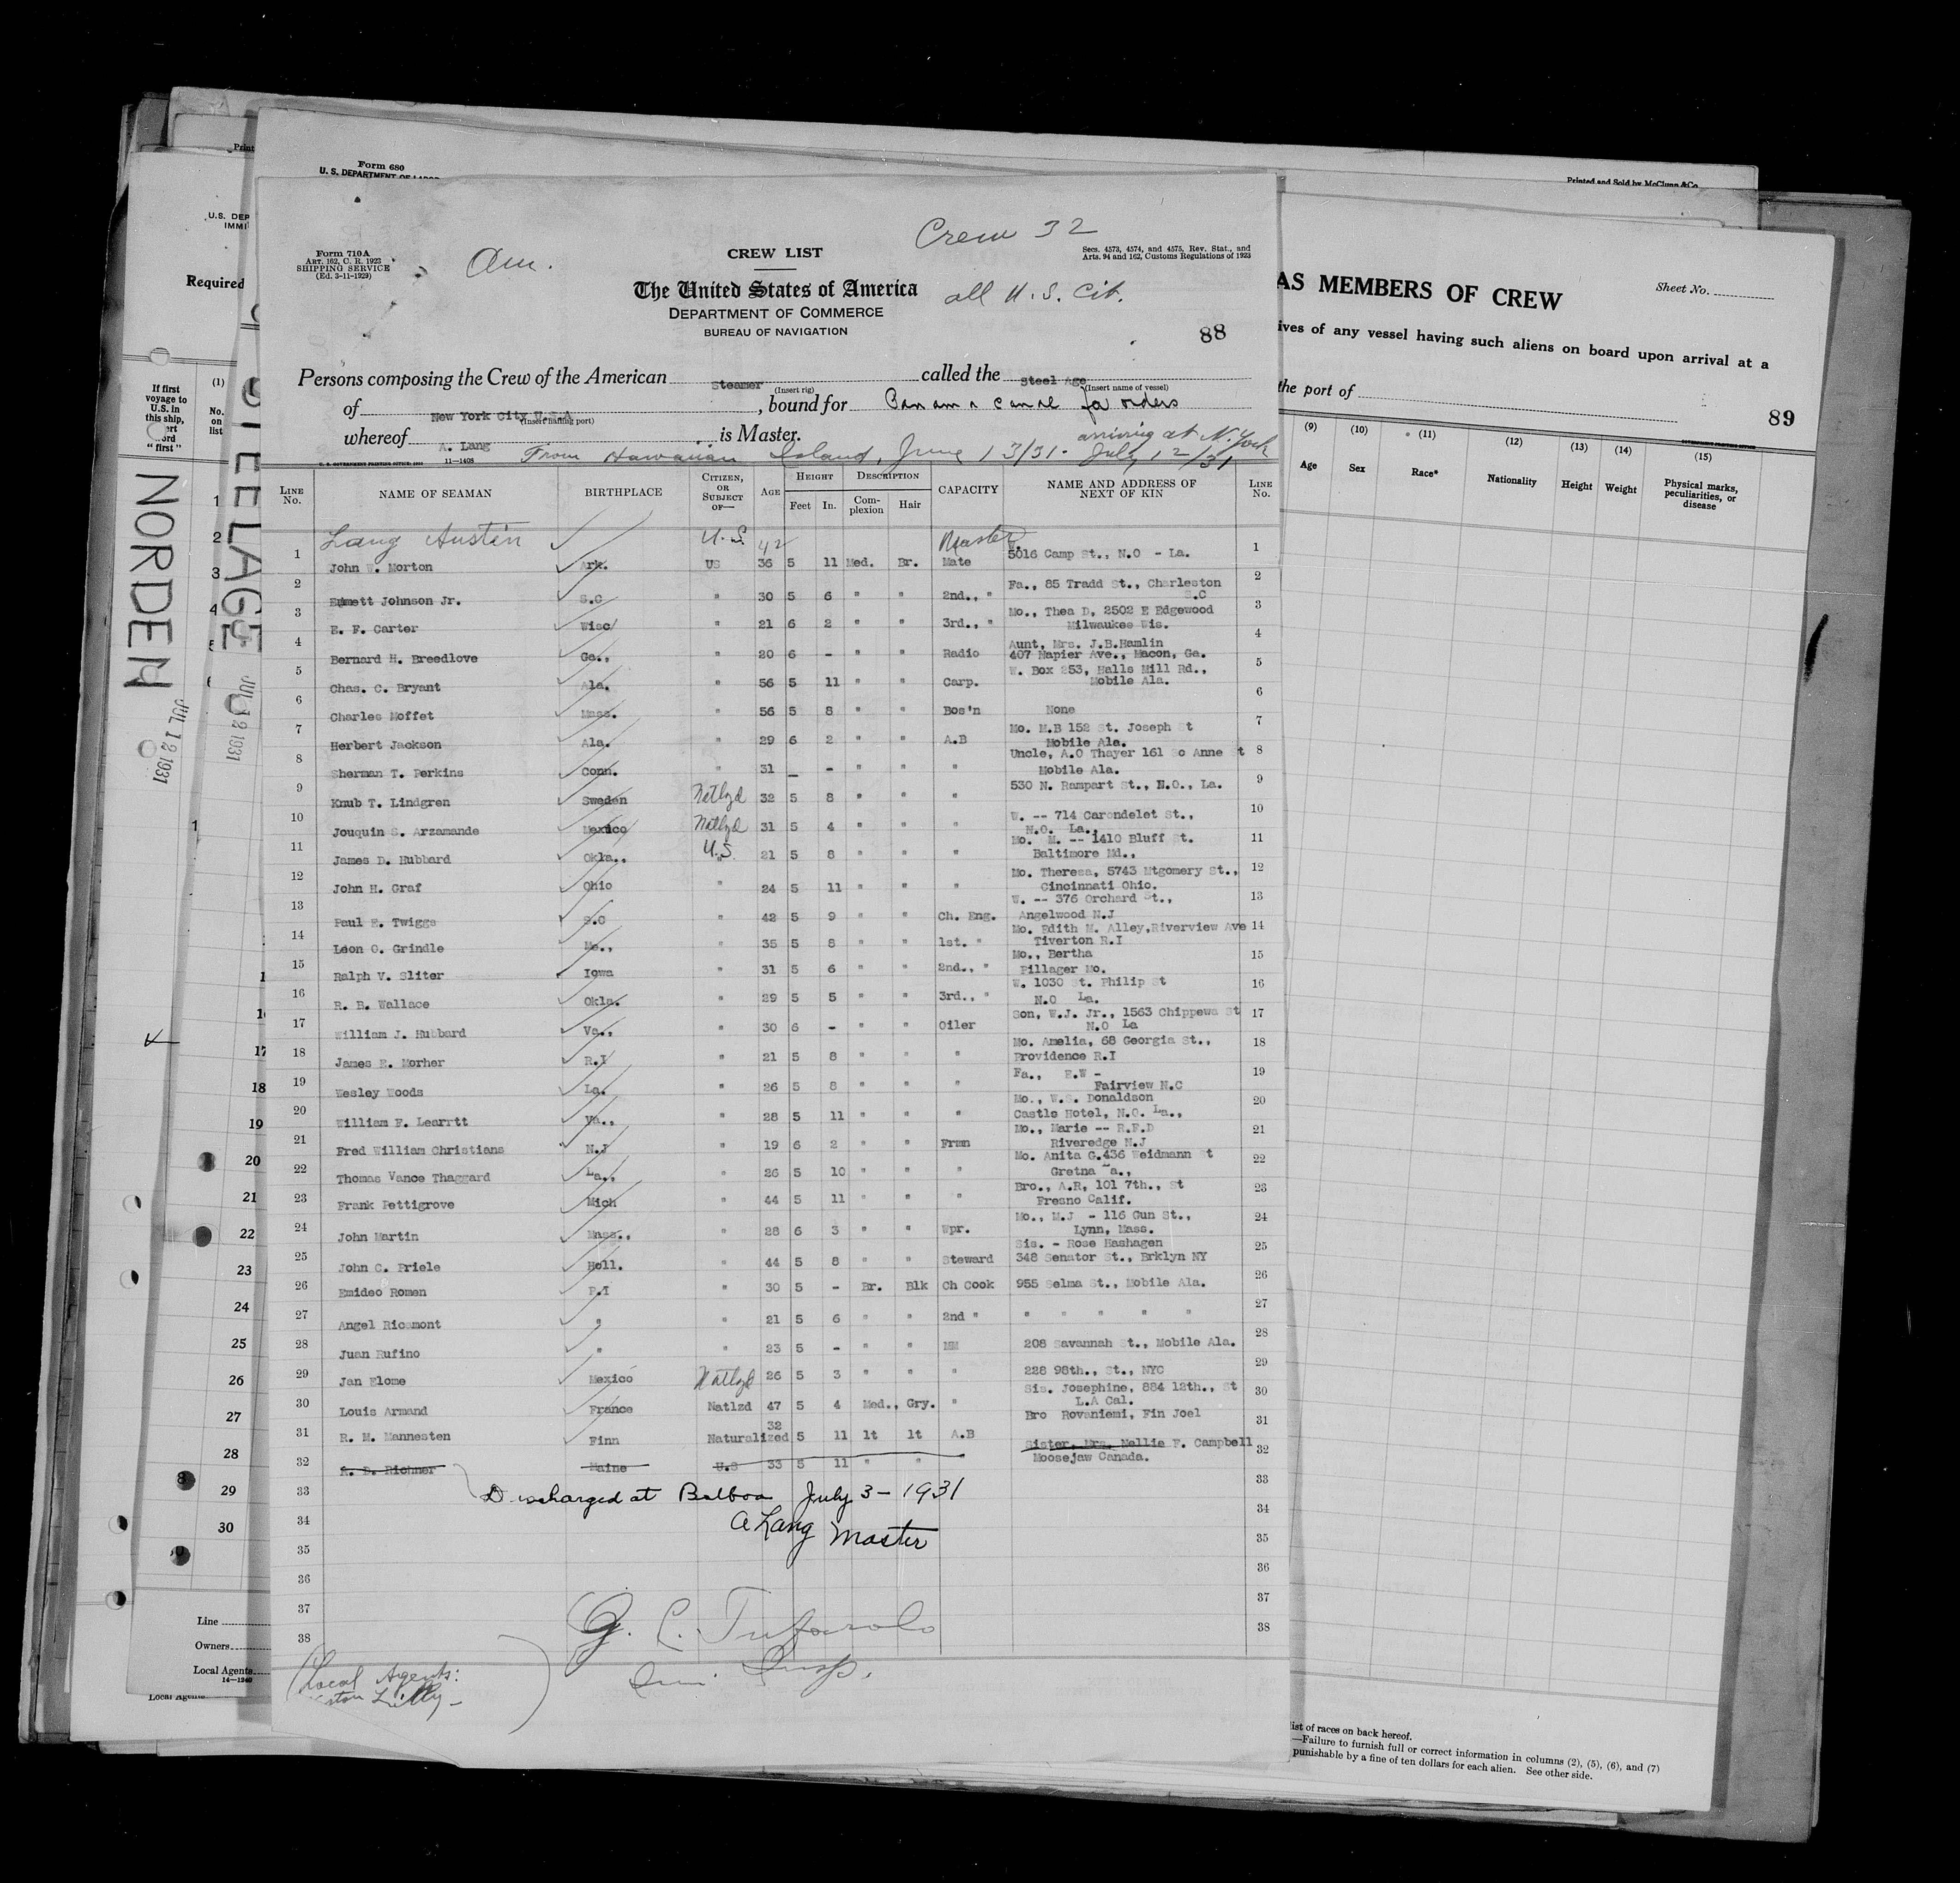 Form 680
U. S. DEPARTMENT OF LABOR
Printed and Sold by McClunn & Co.
U.S. DEP
IMMI
Required
Form 710A
ART. 162, C. R. 1923
SHIPPING SERVICE
(Ed. 3-11-1929)
Am.
Crew 32
CREW LIST
Secs. 4573, 4574, and 4575, Rev. Stat., and
Arts. 94 and 162, Customs Regulations of 1923
The United States of America
all U. S. Cit.
DEPARTMENT OF COMMERCE
BUREAU OF NAVIGATION
88
Persons composing the Crew of the American Steamer called the Steel Age
(Insert rig) (Insert name of vessel)
of New York City U.S.A , bound for Panama canal for orders
(Insert hailing port)
whereof A. Lang is Master.
arriving at N. York
From Hawaiian Island, June 13/31. July 12/31
U. S. GOVERNMENT PRINTING OFFICE: 1931 11—1408
LINE No. NAME OF SEAMAN BIRTHPLACE CITIZEN, OR SUBJECT OF— AGE HEIGHT Feet In. DESCRIPTION Complexion Hair CAPACITY NAME AND ADDRESS OF NEXT OF KIN LINE No.
Lang Austin U.S. 42 Master
1 John W. Morton Ark. US 36 5 11 Med. Br. Mate W. 5016 Camp St., N.O - La. 1
2 Emmett Johnson Jr. S.C " 30 5 6 " " 2nd., " Fa., 85 Tradd St., Charleston S.C 2
3 E. F. Carter Wisc " 21 6 2 " " 3rd., " Mo., Thea D, 2502 E Edgewood Milwaukee Wis. 3
4 Bernard H. Breedlove Ga., " 20 6 - " " Radio Aunt, Mrs. J.B.Hamlin 407 Napier Ave., Macon, Ga. 4
5 Chas. C. Bryant Ala. " 56 5 11 " " Carp. W. Box 253, Halls Mill Rd., Mobile Ala. 5
6 Charles Moffet Mass. " 56 5 8 " " Bos'n None 6
7 Herbert Jackson Ala. " 29 6 2 " " A.B Mo. M.B 152 St. Joseph St Mobile Ala. 7
8 Sherman T. Perkins Conn. " 31 _ - " " " Uncle, A.O Thayer 161 So Anne St Mobile Ala. 8
9 Knub T. Lindgren Sweden Natlzd 32 5 8 " " " 530 N. Rampart St., N.O., La. 9
10 Jouquin S. Arzamande Mexico Natlzd 31 5 4 " " " W. -- 714 Carondelet St., N.O. La., 10
11 James D. Hubbard Okla., U.S. 21 5 8 " " " Mo. M. -- 1410 Bluff St. Baltimore Md., 11
12 John H. Graf Ohio " 24 5 11 " " " Mo. Theresa, 5743 Mtgomery St., Cincinnati Ohio. 12
13 Paul E. Twiggs S.C " 42 5 9 " " Ch. Eng. W. -- 376 Orchard St., Angelwood N.J 13
14 Leon O. Grindle Me., " 35 5 8 " " 1st. " Mo. Edith M. Alley,Riverview Ave Tiverton R.I 14
15 Ralph V. Sliter Iowa " 31 5 6 " " 2nd., " Mo., Bertha Pillager Mo. 15
16 R. B. Wallace Okla. " 29 5 5 " " 3rd., " W. 1030 St. Philip St N.O La. 16
17 William J. Hubbard Va., " 30 6 - " " Oiler Son, W.J. Jr., 1563 Chippewa St N.O La 17
18 James E. Morher R.I " 21 5 8 " " " Mo. Amelia, 68 Georgia St., Providence R.I 18
19 Wesley Woods La. " 26 5 8 " " " Fa., E.W - Fairview N.C 19
20 William F. Learrtt Va., " 28 5 11 " " " Mo., W.S. Donaldson Castle Hotel, N.O. La., 20
21 Fred William Christians N.J " 19 6 2 " " Frmn Mo., Marie -- R.F.D Riveredge N.J 21
22 Thomas Vance Thaggard La., " 26 5 10 " " " Mo. Anita G.436 Weidmann St Gretna La., 22
23 Frank Pettigrove Mich " 44 5 11 " " " Bro., A.R, 101 7th., St Fresno Calif. 23
24 John Martin Mass., " 28 6 3 " " Wpr. Mo., M.J - 116 Gun St., Lynn, Mass. 24
25 John C. Friele Holl. " 44 5 8 " " Steward Sis. - Rose Hashagen 348 Senator St., Brklyn NY 25
26 Emideo Romen P.I " 30 5 - Br. Blk Ch Cook 955 Selma St., Mobile Ala. 26
27 Angel Ricamont " " 21 5 6 " " 2nd " " " " " " 27
28 Juan Rufino " " 23 5 - " " MM 208 Savannah St., Mobile Ala. 28
29 Jan Elome Mexico Natlzd 26 5 3 " " " 228 98th., St., NYC 29
30 Louis Armand France Natlzd 47 5 4 Med., Gry. " Sis. Josephine, 884 12th., St L.A Cal. 30
31 R. M. Mannesten Finn Naturalized 32 5 11 lt lt A.B Bro Rovaniemi, Fin Joel 31
32 R. D. Richner Maine U.S 33 5 11 " " Sister, Mrs. Nellie F. Campbell Moosejaw Canada. 32
33 Discharged at Balboa July 3 - 1931 33
34 A Lang Master 34
35 35
36 36
37 G. C. Tufarolo 37
38 Imm Insp. 38
(Local Agents:
Lilly -
AS MEMBERS OF CREW
Sheet No.
ives of any vessel having such aliens on board upon arrival at a
the port of
89
(9) (10) (11) (12) (13) (14) (15)
Age Sex Race* Nationality Height Weight Physical marks, peculiarities, or disease
GOVERNMENT PRINTING OFFICE
list of races on back hereof.
—Failure to furnish full or correct information in columns (2), (5), (6), and (7)
punishable by a fine of ten dollars for each alien. See other side.
If first voyage to U.S. in this ship,
"first"
(1)
No. on list
NORDEN
JUL 12 1931
STEELAGE
JUL 12 1931
1
2
3
4
17
18
19
20
21
22
23
24
25
26
27
28
29
30
Line
Owners
Local Agents
14—1240
Local Agents